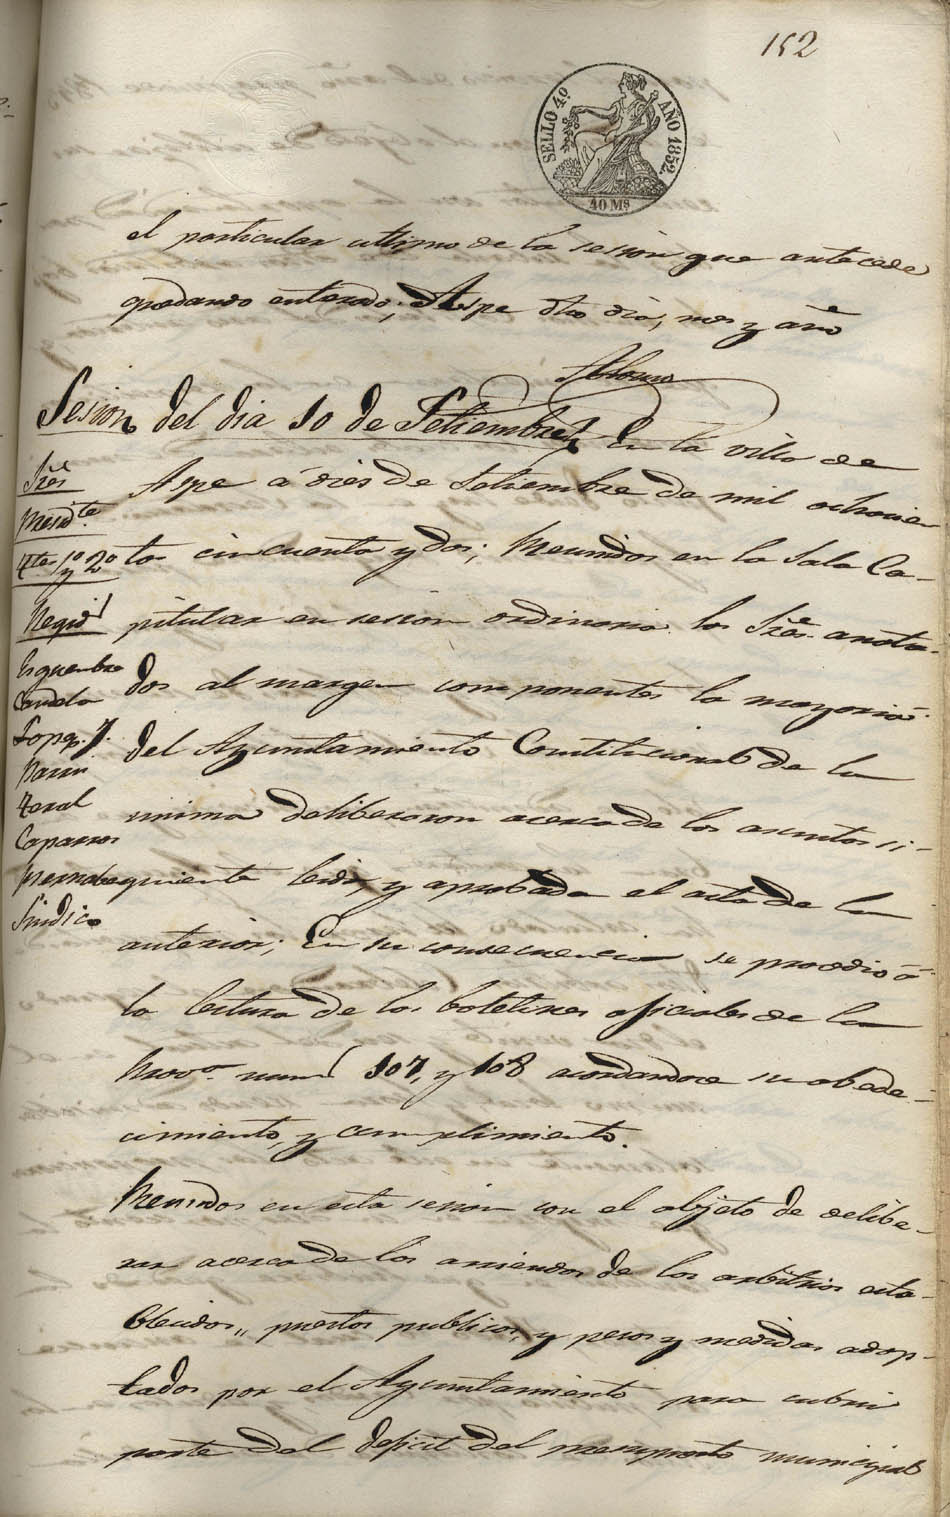 152
SELLO 4º AÑO 1852.
40 Ms
el particular ultimo de la sesion que antecede
quedando enterado; Aspe dho dia, mes y año
Sesion del dia 10 de Setiembre En la villa de
Sres
Aspe á dies de Setiembre de mil ochocien
Presidte
tos cincuenta y dos; Reunidos en la Sala Ca-
Ttes 1º y 2º
pitular en sesion ordinaria los Sres. anota-
Regid
dos al margen componentes la mayoria
Esquembre
Candela
del Ayuntamiento Constitucional de la
misma deliberaron acerca de los asuntos si-
Teral
Caparros
guiente leida, y aprobada el acta de la
Sindico
anterior; En su consecuencia se procedio á
la lectura de los boletines oficiales de la
Prova. num 107, y 108 acordandose su obede-
cimiento, y cumplimiento.
Reunidos en esta sesion con el objeto de delibe-
rar acerca de los arriendos de los arbitrios esta-
blecidos,, puestos publicos, y pesos y medidas adop-
tados por el Ayuntamiento para cubrir
parte del deficit del presupuesto municipal